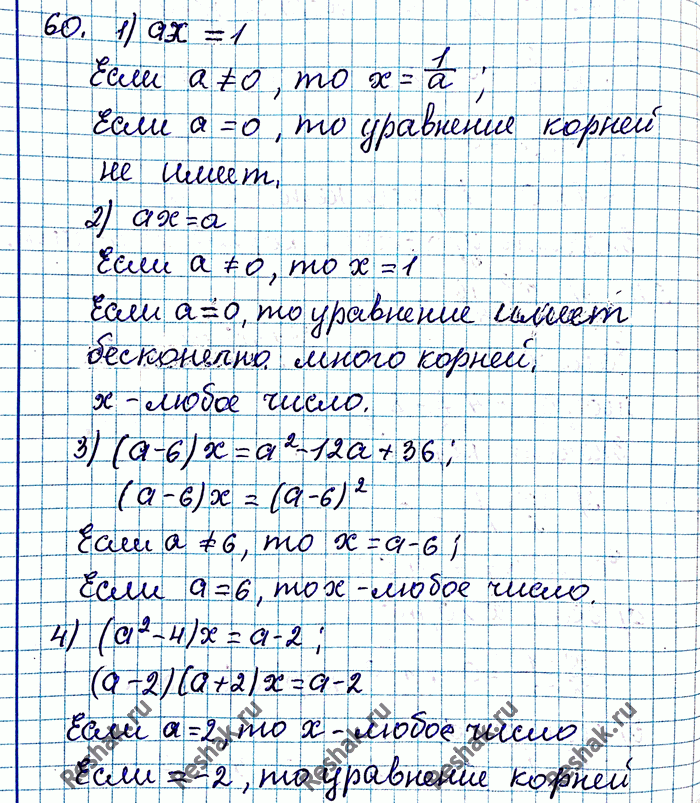 60. 1) ax = 1
Если a ≠ 0, то x = 1/a;
Если a = 0, то уравнение корней
не имеет.
2) ax = a
Если a ≠ 0, то x = 1
Если a = 0, то уравнение имеет
бесконечно много корней.
x - любое число.
3) (a-6)x = a² - 12a + 36;
(a-6)x = (a-6)²
Если a ≠ 6, то x = a-6;
Если a = 6, то x - любое число.
4) (a² - 4)x = a-2;
(a-2)(a+2)x = a-2
Если a = 2, то x - любое число
Если = -2, то уравнение корней
Reshak.ru Reshak.ru Reshak.ru Reshak.ru Reshak.ru